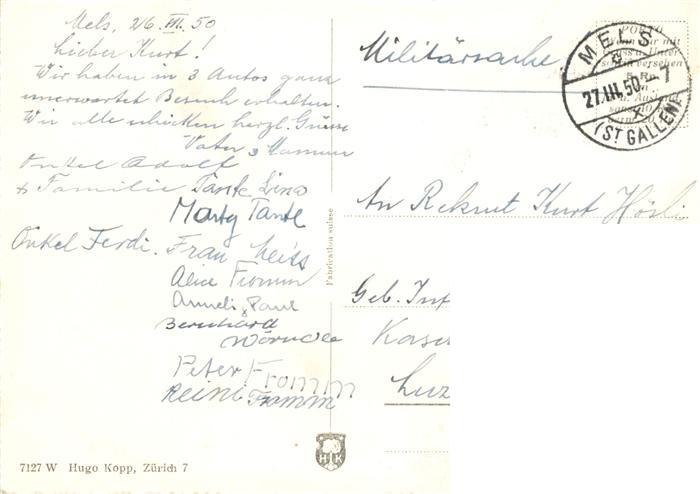 Mels, 26. III. 50
Lieber Kurt!
Wir haben in 3 Autos ganz
unerwartet Besuch erhalten.
Wir alle schicken herzl. Grüsse
Vater &
Onkel Adolf
+ Familie Tante Lina
Marty Tante
Onkel Ferdi. Frau Meiss
Alice Fromm
Anneli & Paul
Bernhard
Wörndle
Peter Fromm
Reini Fromm
7127 W Hugo Kopp, Zürich 7
HK
Fabrication suisse
Militärsache
PORTO
MELS
27.III.50. - 7
(ST GALLEN)
An Rekrut Kurt Hösli
Geb. Inf
Kaser
Luz